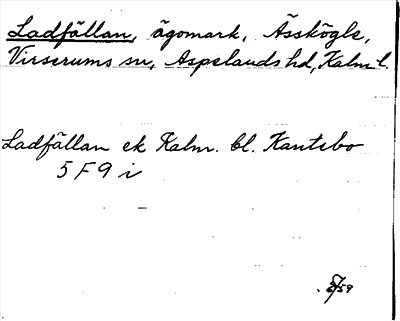 Ladfällan, ägomark, Åsskögle,
Virserums sn, Aspelands hd, Kalm. l.
Ladfällan ek Kalm. bl. Kantebo
5 F 9 i
59